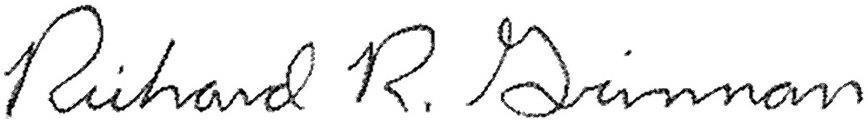 Richard R. Grinnan